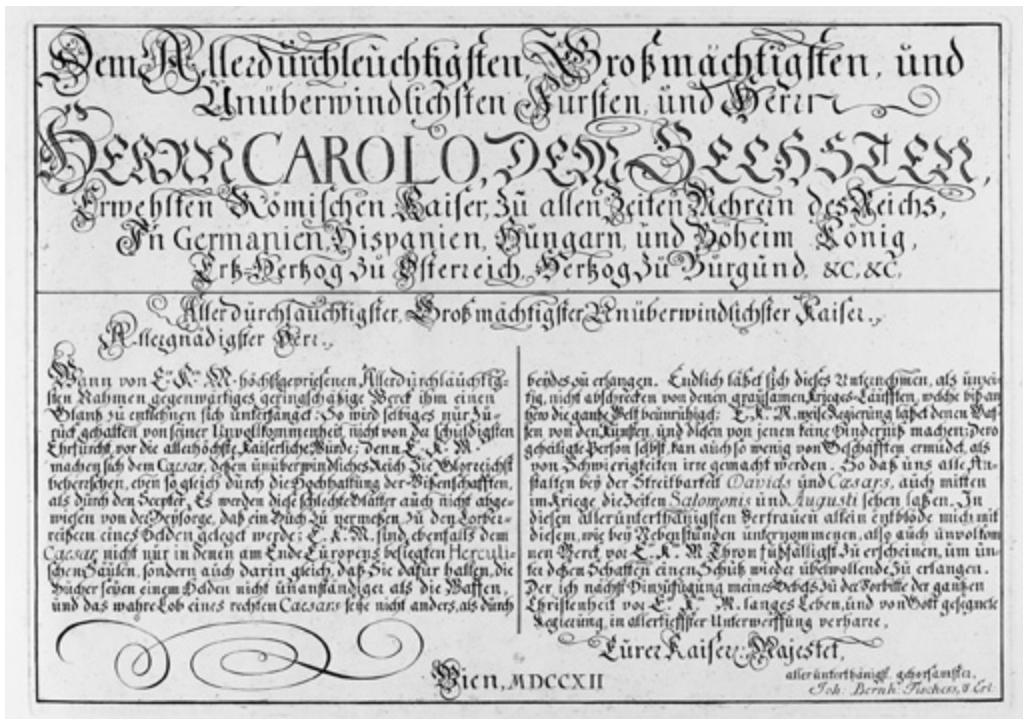 Dem Allerdurchleuchtigsten, Großmächtigsten, und
Unüberwindlichsten Fursten, und Herrn
HERRN CAROLO, DEM SECHSTEN,
Erwehlten Römischen Kaiser, zu allen Zeiten Mehrern des Reichs,
In Germanien, Hispanien, Hungarn, und Böheim König,
Ertz-Hertzog zu Österreich, Hertzog zu Burgund, &c, &c,
Allerdurchläuchtigster, Großmächtigster Unüberwindlichster Kaiser,,
Allergnädigster Herr,,
Wann von E. K. M. höchstgepriesenen Allerdurchläuchtig-
sten Nahmen gegenwärtiges geringschäzige Werck ihm einen
Glantz zu entlehnen sich unterfanget: So wird selbiges nur zu-
ruck gehalten von seiner Unvollkommenheit, nicht von der schuldigsten
Ehrfurcht, vor die allerhöchste Kaiserliche Wurde: denn E. K. M.
machen sich dem Caesar, deßen unüberwindliches Reich Sie Glorreichst
beherrschen, eben so gleich durch die Hochhaltung der Wißenschafften,
als durch den Scepter, Es werden diese schlechte Blätter auch nicht abge-
wiesen von der Beysorge, daß ein Buch zu vermeßen zu den Lorber-
reißern eines Helden geleget werde; E. K. M. sind ebenfalls dem
Caesar nicht nur in denen am Ende Europens besiegten Herculi-
schen Säulen, sondern auch darin gleich, daß Sie dafur halten, die
Bücher seyen einem Helden nicht unanständiger als die Waffen,
und das wahre Lob eines rechten Caesars setze nicht anders, als durch
beydes zu erlangen. Endlich läßet sich dieses Unternehmen, als unzei-
tig, nicht abschrecken von denen grausamen Krieges-Läufften, welche biß an
hero die gantze Welt beunruhiget: E. K. M. weise Regierung läßet denen Waf-
fen von den Künsten, und diesen von jenen keine Hindernüß machen; Dero
geheiligte Person selbst, kan auch so wenig von Geschäfften ermudet, als
von Schwierigkeiten irre gemacht werden. So daß uns alle An-
stalten bey der Streitbarkeit Davids und Caesars, auch mitten
im Kriege die Zeiten Salomonis und Augusti sehen laßen. In
diesen allerunterthänigsten Vertrauen allein entblöde mich mit
diesem, wie bey Nebenstunden unternommenen, also auch unvolkom
nen Werck vor E. K. M. Thron fußfälligst zu erscheinen, um un-
ter deßen Schatten einen Schutz wieder übelwollende zu erlangen.
Der ich nächst Hinzufügung meines Gebets, zu der Vorbitte der gantzen
Christenheit vor E. K. M. langes Leben, und von Gott gesegnete
Regierung, in allertieffster Unterwerffung verharre,
Eurer Kaiser: Majestet,
Wien, MDCCXII
allerunterthänigst. gehorsamster,
Joh: Bernh: Fischers, v Erl.